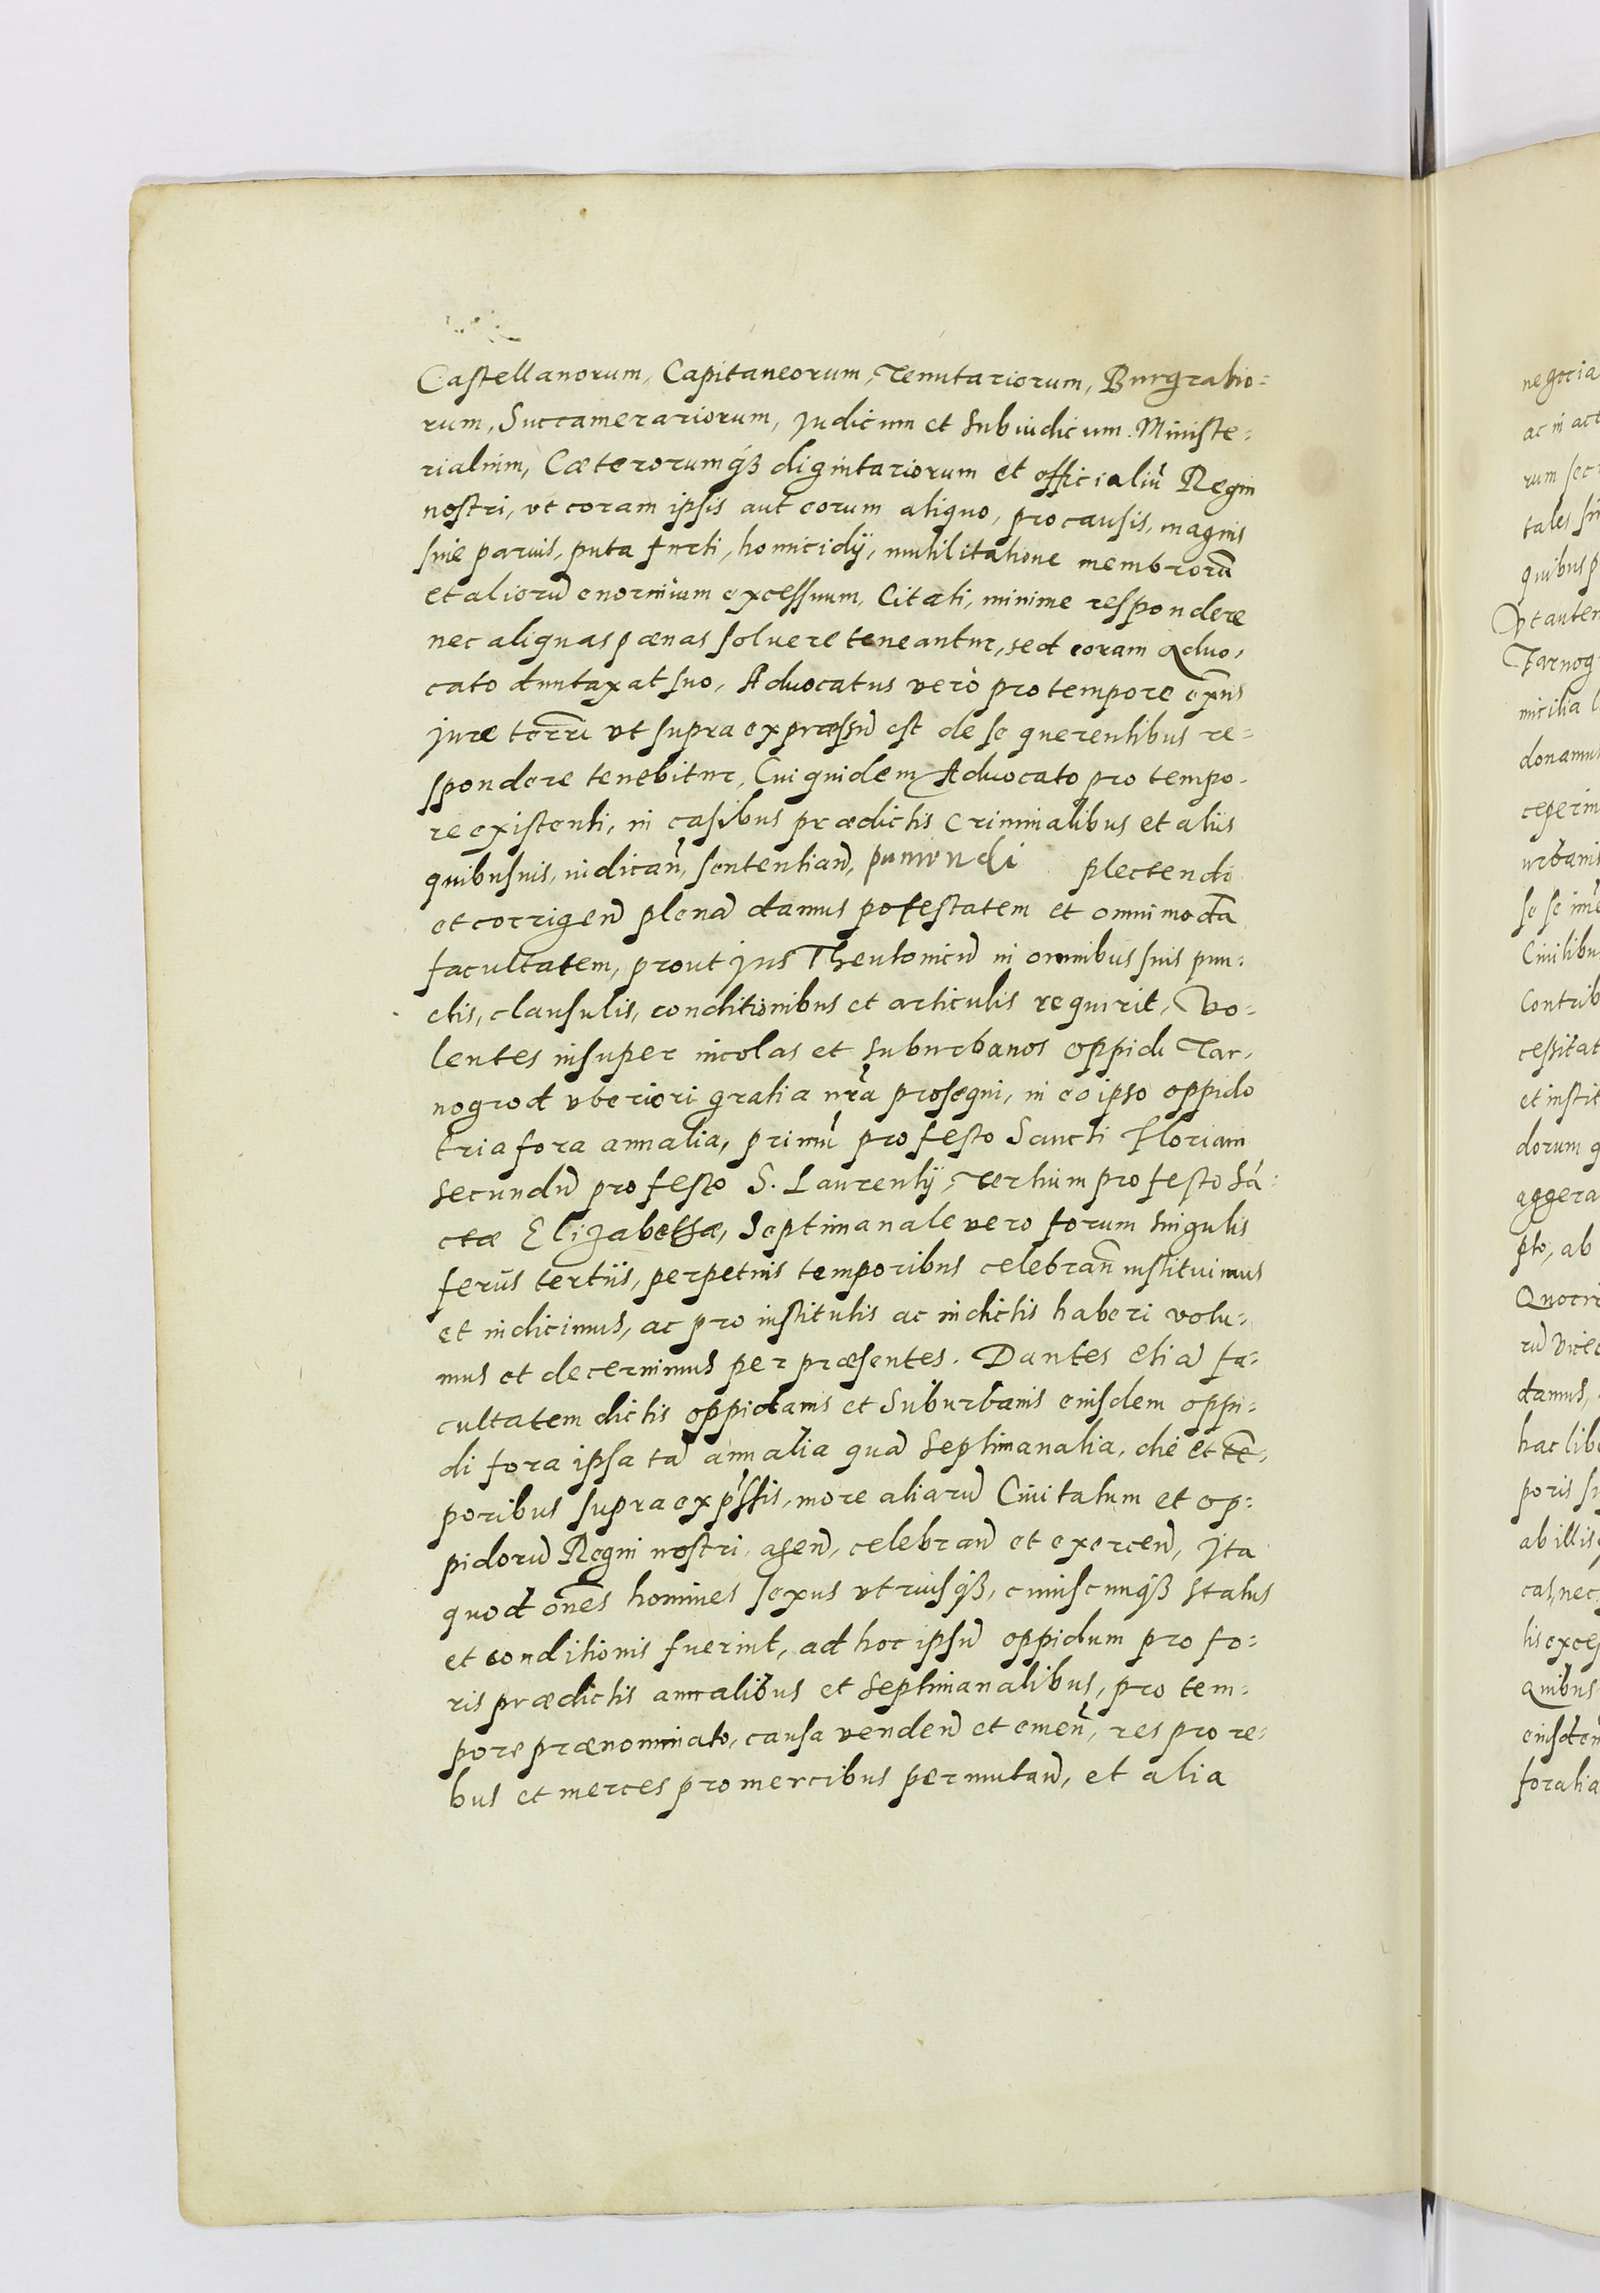 Castellanorum, Capitaneorum, Tenutariorum, Burgrabio=
rum, Succamerariorum, Judicum et Subiudicum. Ministe=
rialium, Cæterorumqȝ dignitariorum et officialiū Regni
nostri, vt coram ipsis aut eorum aliquo, pro causis, magnis
siue paruis, puta furti, homicidÿ, mutilitatione membrorū
et aliorū enormium excessuum, Citati, minime respondere
nec aliquas pœnas soluere teneantur, sed coram Aduo=
cato duntaxat suo, Aduocatus verò pro tempore exñs
jure terrī vt supra expræssū est de se querentibus re=
spondere tenebitur, Cui quidem Aduocato pro tempo=
re existenti, in casibus prædictis Criminalibus et aliis
quibusuis, iudicañ, sententiand, puniendi plectendi
et corrigend plenā damus potestatem et omnimodā
facultatem, prout jus Theutonicū in omnibus suis pun=
ctis, clausulis, conditionibus et articulis requirit, Vo=
lentes insuper incolas et suburbanos oppidi Tar=
nogrod vberiori gratia nrã prosequi, in eo ipso oppido
tria fora annalia, primū pro festo Sancti Floriani
secundū pro festo S. Laurentÿ, Tertium pro festo Sā=
ctæ Elizabethæ, Septimanale vero forum singulis
ferijs tertijs, perpetuis temporibus celebrañ instituimus
et indicimus, ac pro institutis ac indictis haberi volu=
mus et decernimus per præsentes. Dantes etiā fa=
cultatem dictis oppidanis et Suburbanis eiusdem oppi=
di fora ipsa tā annalia quā Septimanalia, die et tē=
poribus supra exp̃ssis, more aliarū Ciuitatum et op=
pidorū Regni nostri, agend, celebrand et exercend, Ita
quod oñes homines sexus vtriusqȝ, cuiuscunqȝ status
et conditionis fuerint, ad hoc ipsū oppidum pro fo=
ris prædictis annalibus et Septimanalibus, pro tem=
pore prænominato, causa vendend et emeñ, res pro re=
bus et merces pro mercibus permutand, et alia